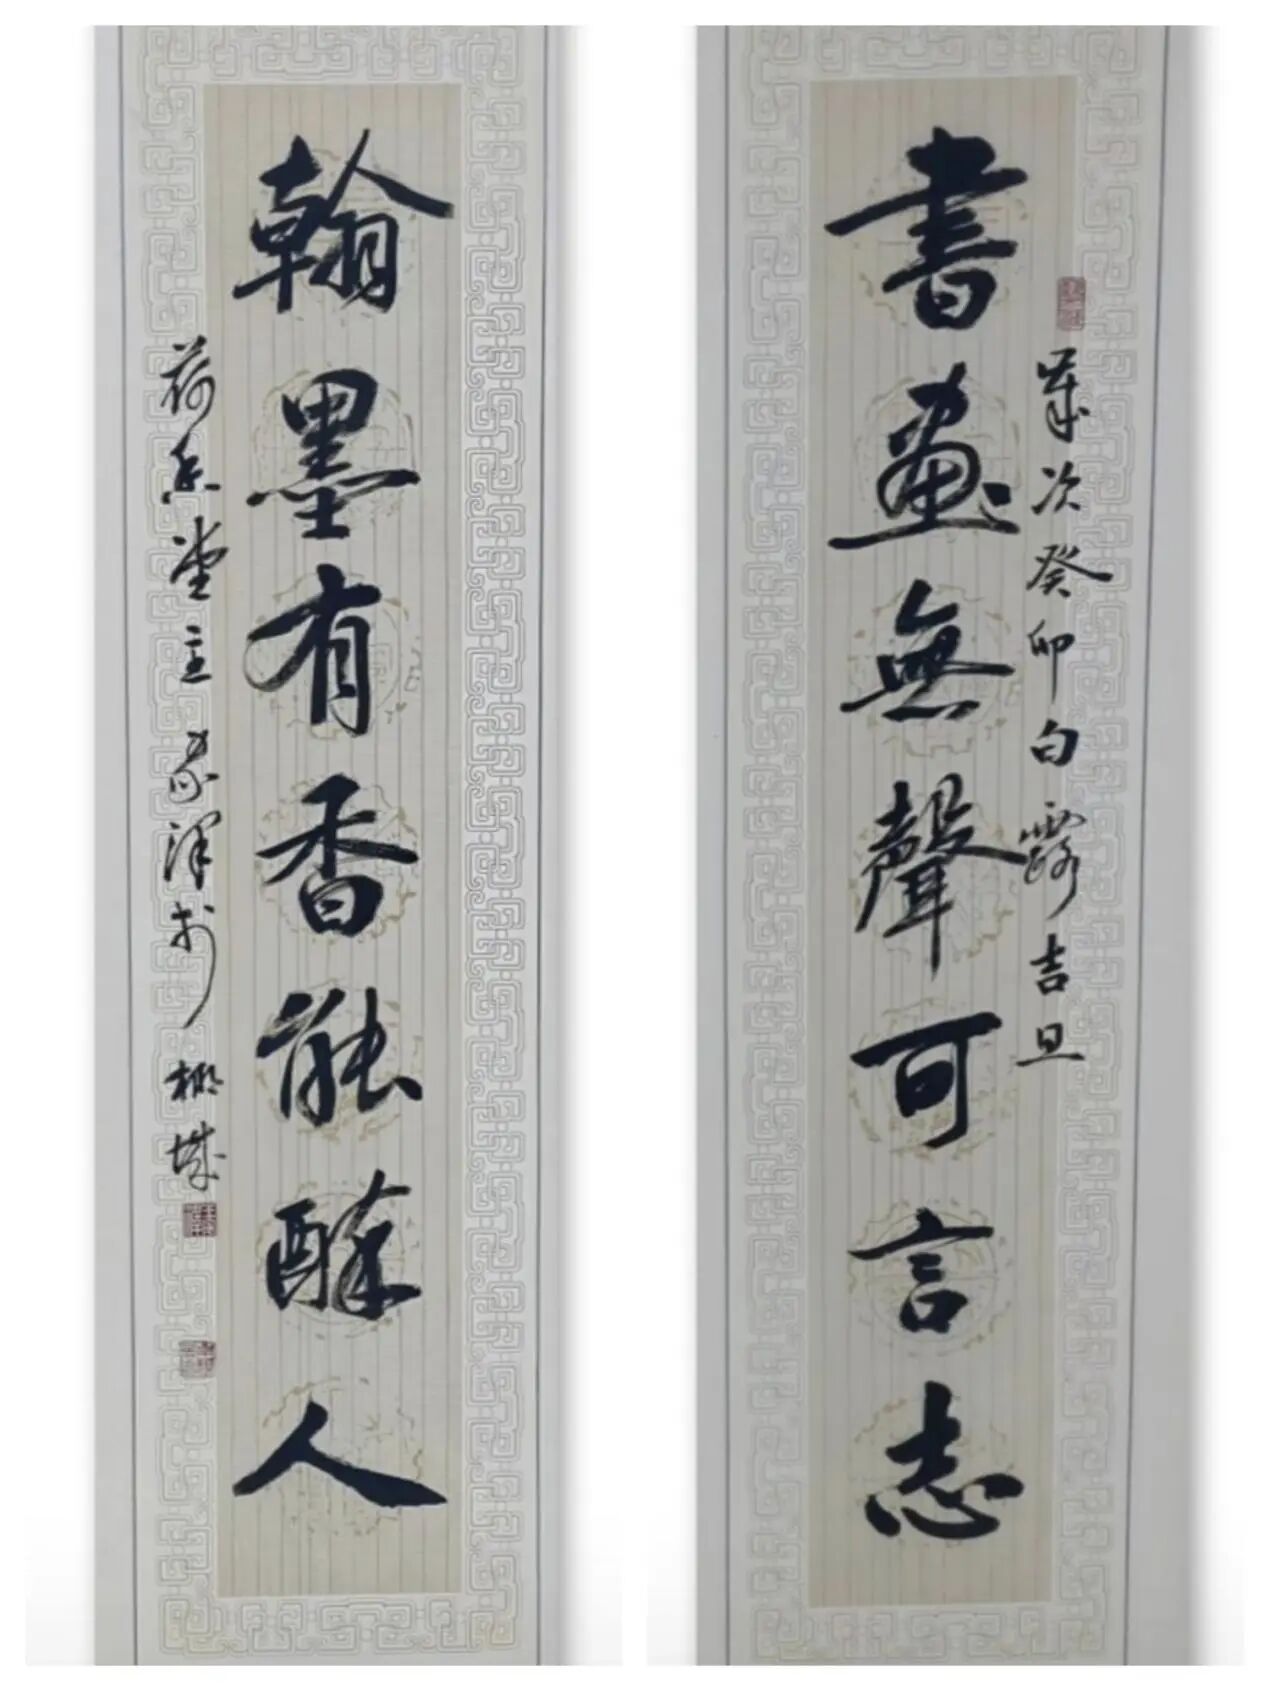 歲次癸卯白露吉旦
書畫無聲可言志
翰墨有香能醉人
荷香堂主家澤於城